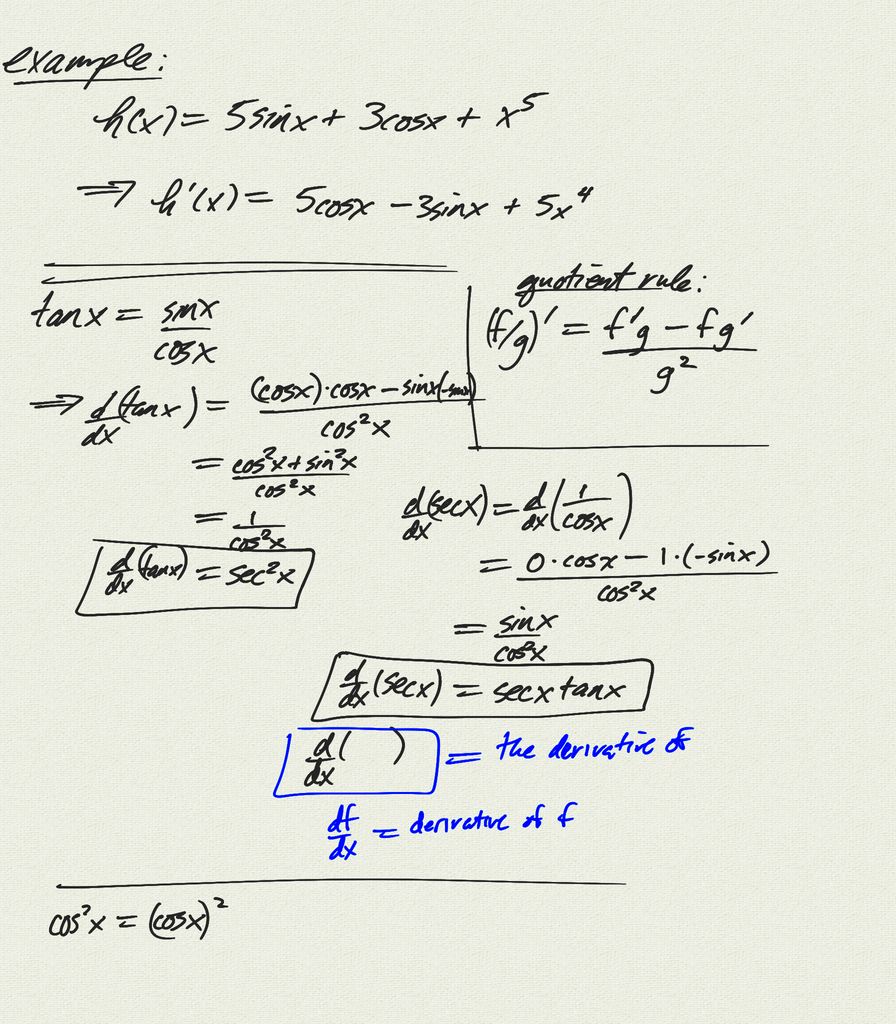 example:
h(x) = 5sinx + 3cosx + x⁵
⟹ h'(x) = 5cosx − 3sinx + 5x⁴
tanx = sinx/cosx
⟹ d/dx(tanx) = ((cosx)·cosx − sinx(-sinx))/cos²x
= (cos²x + sin²x)/cos²x
= 1/cos²x
d/dx(tanx) = sec²x
quotient rule:
(f/g)' = (f'g − fg')/g²
d/dx(secx) = d/dx(1/cosx)
= (0·cosx − 1·(-sinx))/cos²x
= sinx/cos²x
d/dx(secx) = secx tanx
d/dx( ) = the derivative of
df/dx = derivative of f
cos²x = (cosx)²